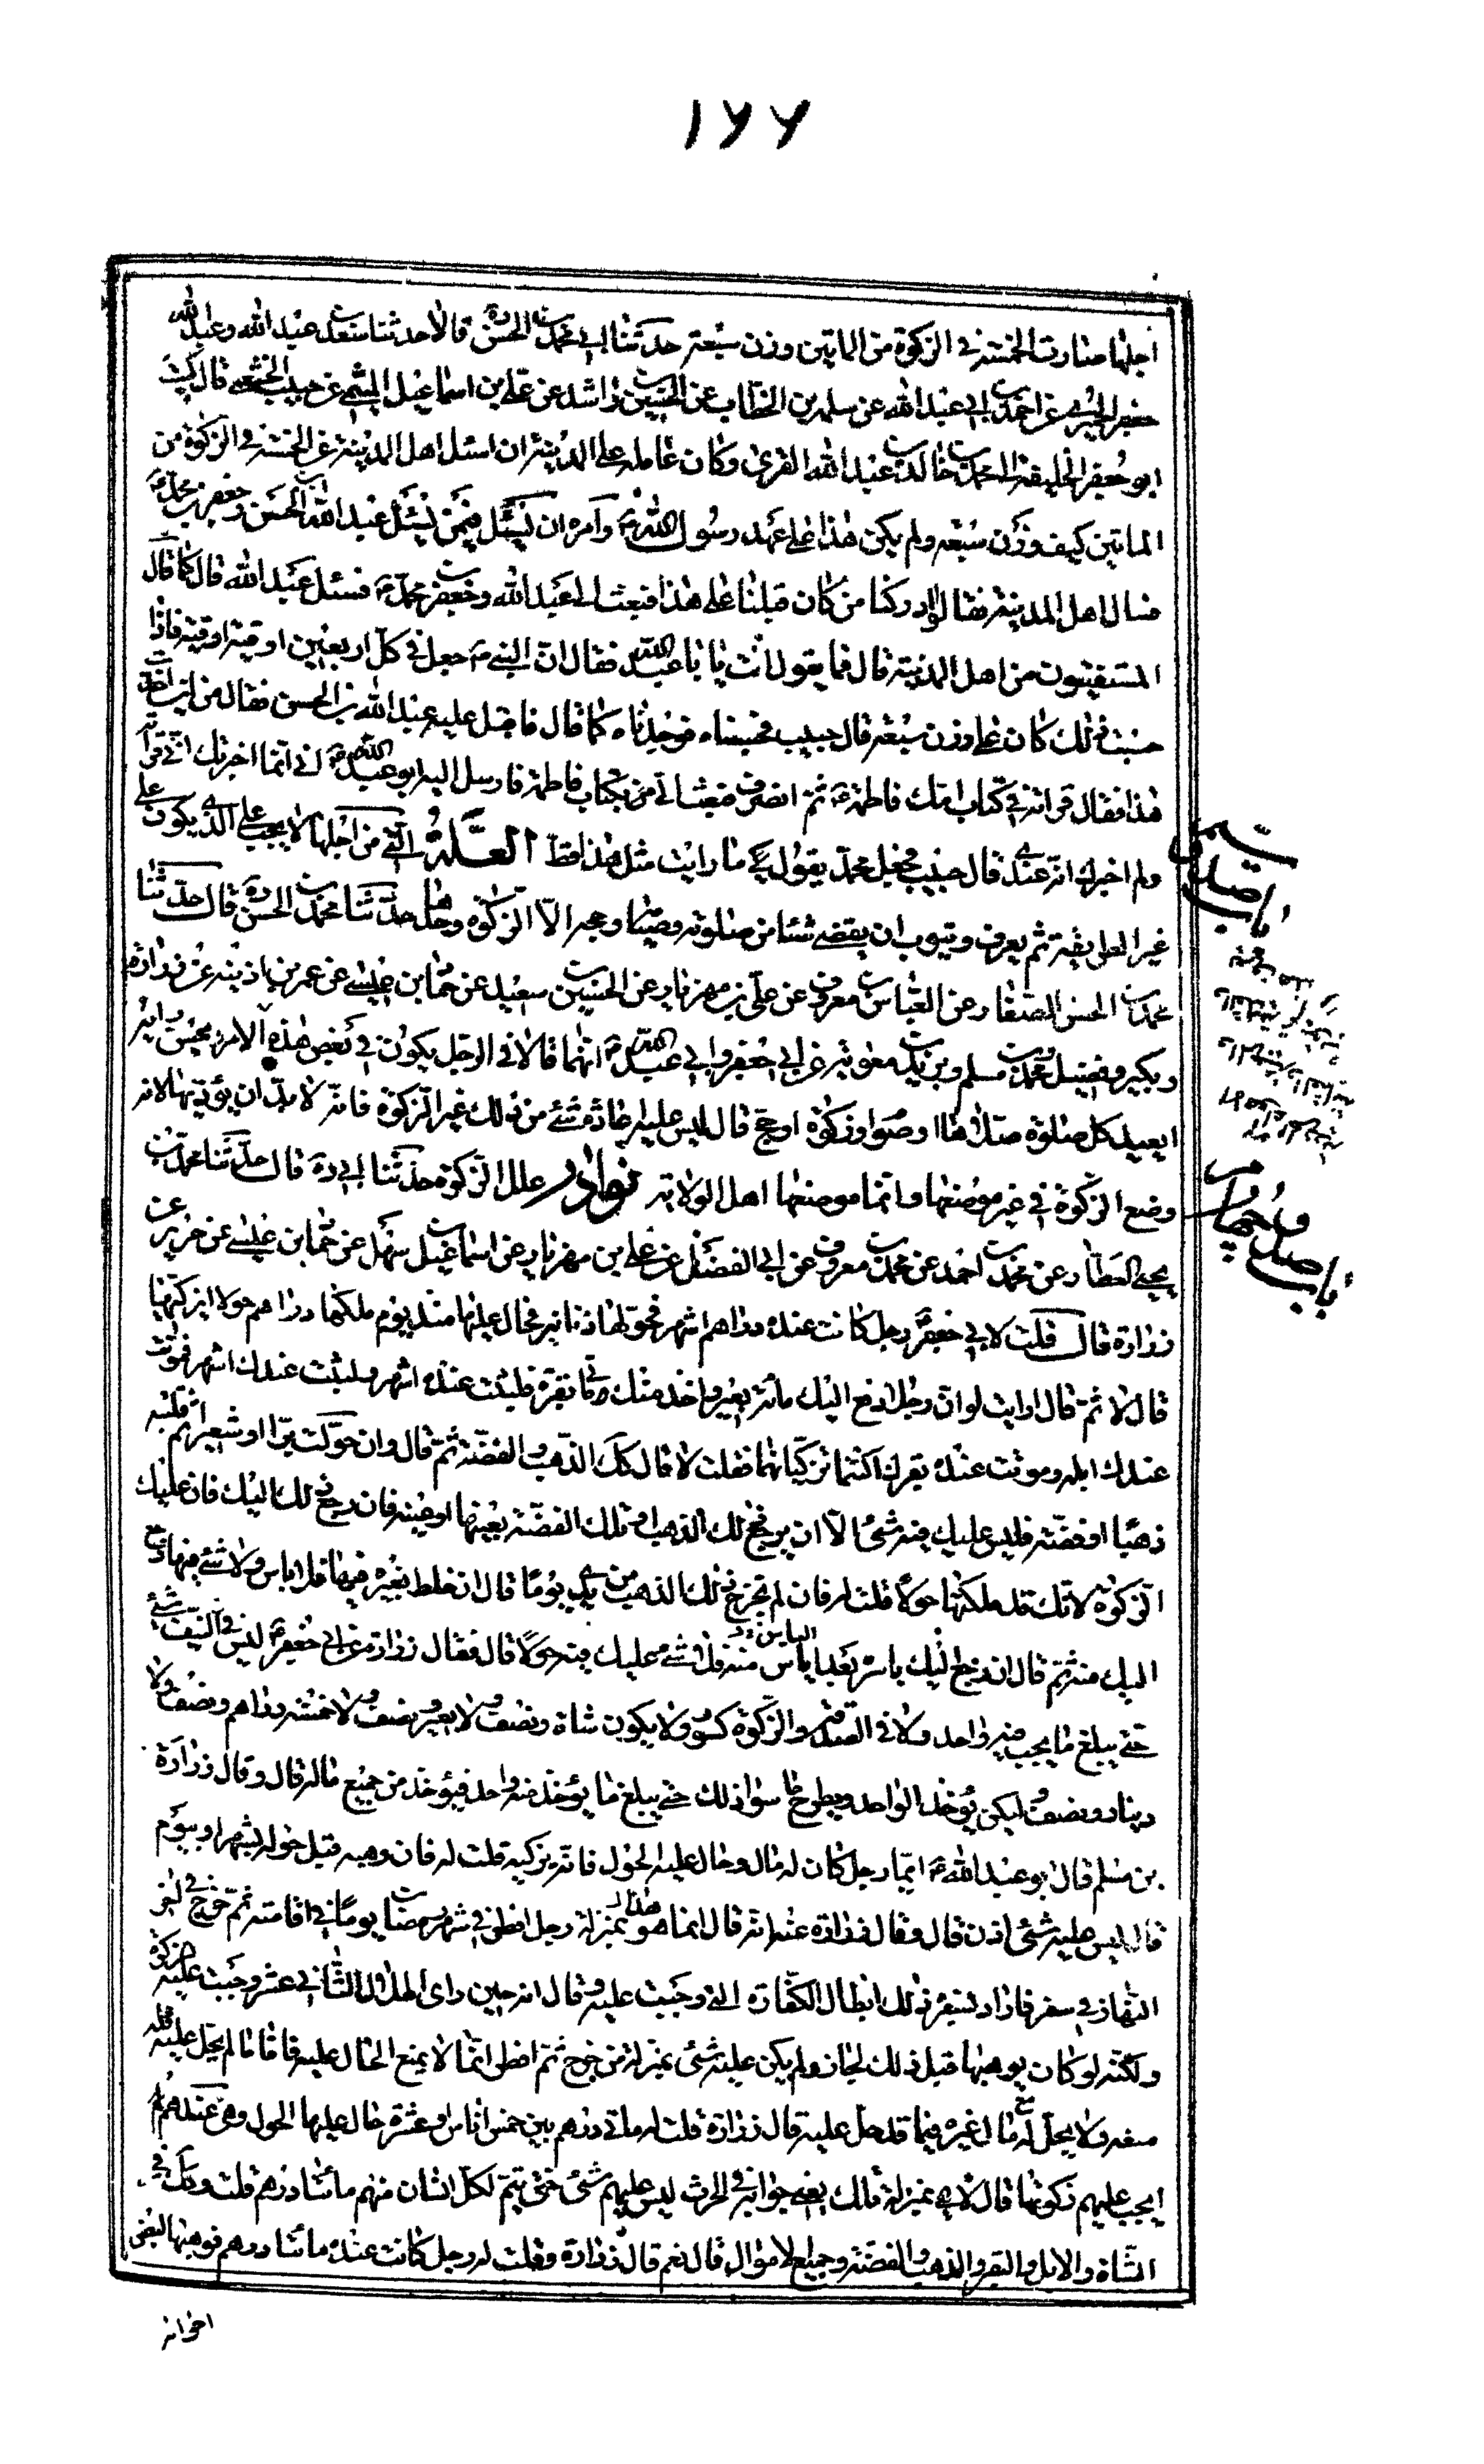 ١٦٦
اجلها صارت الخمسة في الزكوة من الماتين وزن سبعة حدثنا ابي ومحمد بن الحسن ره قالا حدثنا سعد بن عبد الله وعبد الله
بن جعفر الحميري عن احمد بن ابي عبد الله عن سلمة بن الخطاب عن الحسين بن راشد عن علي بن اسماعيل الميثمي عن حبيب الخثعمي قال كتب
ابو جعفر الخليفة الى محمد بن خالد بن عبد الله القسري وكان عامله على المدينة ان اسئل اهل المدينة عن الخمسة في الزكوة من
الماتين كيف وزن سبعة ولم يكن هذا على عهد رسول الله ص وامره ان يسئل فيمن يسئل عبد الله بن الحسن وجعفر بن محمد ع
فسال اهل المدينة فقالوا ادركنا من كان قبلنا على هذا فبعث الى عبد الله وجعفر بن محمد ع فسئل عبد الله قال كما قال
المستفتون من اهل المدينة قال فما يقول انت يا ابا عبد الله فقال ان النبي ص جعل في كل اربعين اوقية اوقية فاذا
حسبت ذلك كان على وزن سبعة قال حبيب فحسبناه فوجدناه كما قال فاقبل عليه عبد الله بن الحسن فقال من اين اخذت
هذا فقال قراته في كتاب امك فاطمة ع ثم انصرف فبعث الي من بكتاب فاطمة فارسل اليه ابو عبد الله ع اني انما اخبرتك اني قراته
ولم اخبرك انه عندي قال حبيب فجعل محمد يقول لي ما رايت مثل هذا قط العلة التي من اجلها لا يجب على الذي يكون على
غير الطريقة ثم يعرف ويتوب ان يقضي شيئا من صلوته وصيامه وحجه الا الزكوة وحدها حدثنا محمد بن الحسن ره قال حدثنا
محمد بن الحسن الصفار عن العباس بن معروف عن علي بن مهزيار عن الحسين بن سعيد عن حماد بن عيسى عن عمر بن اذينة عن زرارة
وبكير وفضيل ومحمد بن مسلم وبريد بن معوية عن ابي جعفر وابي عبد الله ع انهما قالا في الرجل يكون في بعض هذه الا
ايعيد كل صلوة صلاها او صوم او زكوة او حج قال ليس عليه اعادة شئ من ذلك غير الزكوة فانه لا بد ان يؤديها لانه
وضع الزكوة في غير موضعها وانما موضعها اهل الولاية نوادر علل الزكوة حدثنا ابي ره قال حدثنا محمد بن
يحيى العطار عن محمد بن احمد عن محمد بن معروف عن ابي الفضل عن علي بن مهزيار عن اسماعيل بن سهل عن حماد بن عيسى عن حريز عن
زرارة قال قلت لابي جعفر ع رجل كانت عنده دراهم اشهر فحولها دنانير فحال عليها منذ يوم ملكها دراهم حولا ايزكيها
قال لا ثم قال ارايت لو ان رجلا دفع اليك مائة بعير واخذ منك مائتي بقرة فلبثت عنده اشهر ولبثت عندك اشهر فموتت
عندك ابله وموتت عنده بقرك اكنتما تزكيانها فقلت لا قال كك الذهب والفضة ثم قال وان حولت برا او شعيرا ثم قلبته
ذهبا او فضة فليس عليك فيه شئ الا ان يرجع ذلك الذهب او تلك الفضة بعينها او عينه فان رجع ذلك اليك فان عليك
الزكوة لانك قد ملكتها حولا قلت له فان لم تخرج ذلك الذهب من يدي يوما قال ان خلط بغيره فيها فلا باس ولا شئ فيها رجع
اليك منه ثم قال ان رجع اليك باسره بعد ياس منه فلا شئ عليك فيه حولا قال فقال زرارة عن ابي جعفر ع ليس في النيف شئ
حتى يبلغ ما يجب فيه واحد ولا في الصدقة والزكوة كسور ولا يكون شاة ونصف ولا بعير ونصف ولا خمسة دراهم ونصف ولا
دينار ونصف ولكن يؤخذ الواحد ويطرح ما سوا ذلك حتى يبلغ ما يؤخذ منه واحد فيؤخذ من جميع ماله قال وقال زرارة
بن مسلم قال ابو عبد الله ع ايما رجل كان له مال وحال عليه الحول فانه يزكيه قلت له فان وهبه قبل حوله بشهر او بيوم
قال ليس عليه شئ اذن قال وقال زرارة عنه انه قال انما هذا بمنزلة رجل افطر في شهر رمضان يوما في اقامته ثم خرج في اخر
النهار في سفر فاراد بسفره ذلك ابطال الكفارة التي وجبت عليه وقال انه حين راى الهلال الثاني عشر وجبت عليه الزكوة
ولكنه لو كان يوهبها قبل ذلك لجاز ولم يكن عليه شئ بمنزلة من خرج ثم افطر انما لا يمنع الحال عليه فاما ما لم يحل عليه فله
منعه ولا يحل له منع مال غيره فيما قد حل عليه قال زرارة قلت له مائتي درهم بين خمس اناس او عشرة حال عليها الحول وهي عندهم
ايجب عليهم زكوتها قال لا هي بمنزلة تلك يعني جوابه في الحرث ليس عليهم شئ حتى يتم لكل انسان منهم مائتا درهم قلت وكك في
الشاة والابل والبقر والذهب والفضة وجميع الاموال قال نعم قال زرارة وقلت له رجل كانت عنده مائتا درهم فوهبها لبعض
اخوانه